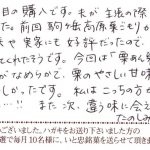 目の購入です。夫が主張の際
た。前回駒ヶ岳高原巣ごもりが
や実家にも好評だったので
くれたそうです。今回は「栗あん
がなめらかで、栗のやさしい甘味
しかったです。私はこっちの方が
…!! また次、違う味に会え
たのしみ
ございました。ハガキをお送り下さいました方の
選で毎月10名様に、いと忠銘菓を送らせて頂き